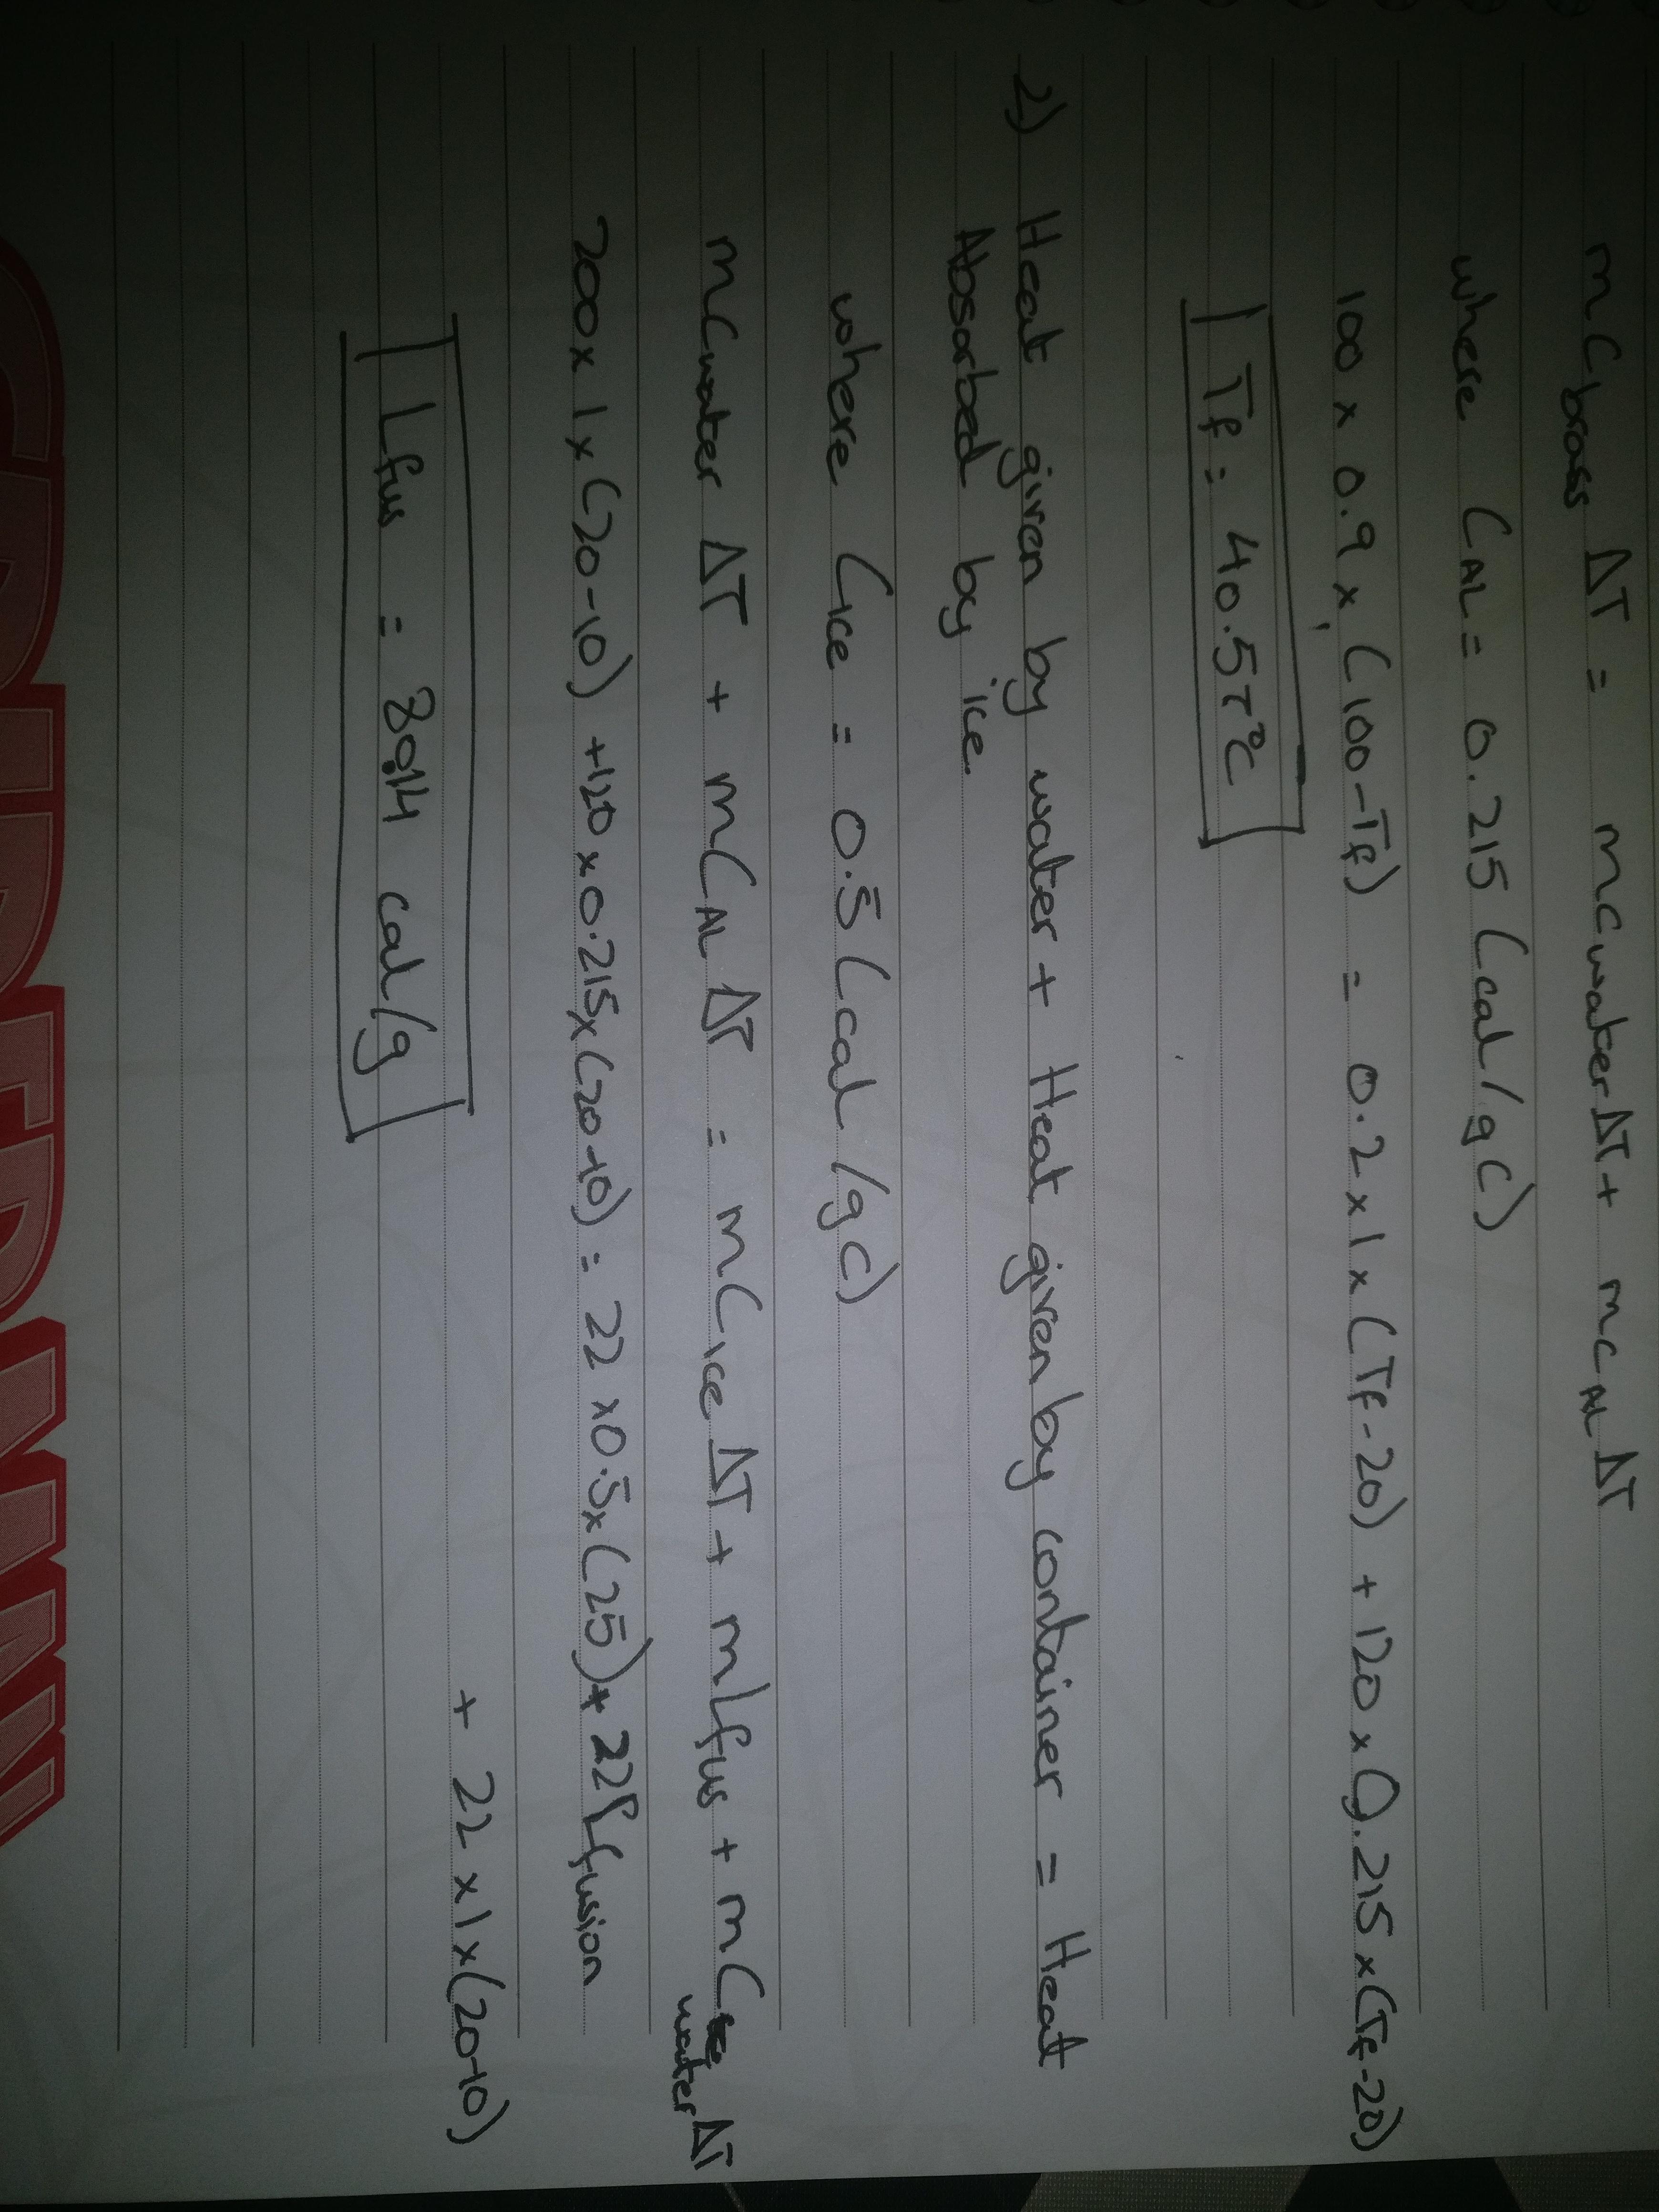 mCbrass ΔT = mCwaterΔT + mCAL ΔT
where CAL = 0.215 (cal/gC)
100 x 0.9 x (100-Tf) = 0.2 x 1 x (Tf-20) + 120 x 0.215 x (Tf-20)
Tf = 40.57°C
2) Heat given by water + Heat given by container = Heat
Absorbed by ice.
where Cice = 0.5 (cal/gC)
mCwater ΔT + mCAL ΔT = mCice ΔT + mLfus + mCwater ΔT
200 x 1 x (20-10) + 120 x 0.215 x (20-10) = 22 x 0.5 x (25) + 22 Lfusion
+ 22 x 1 x (20-10)
Lfus = 80.14 cal/g